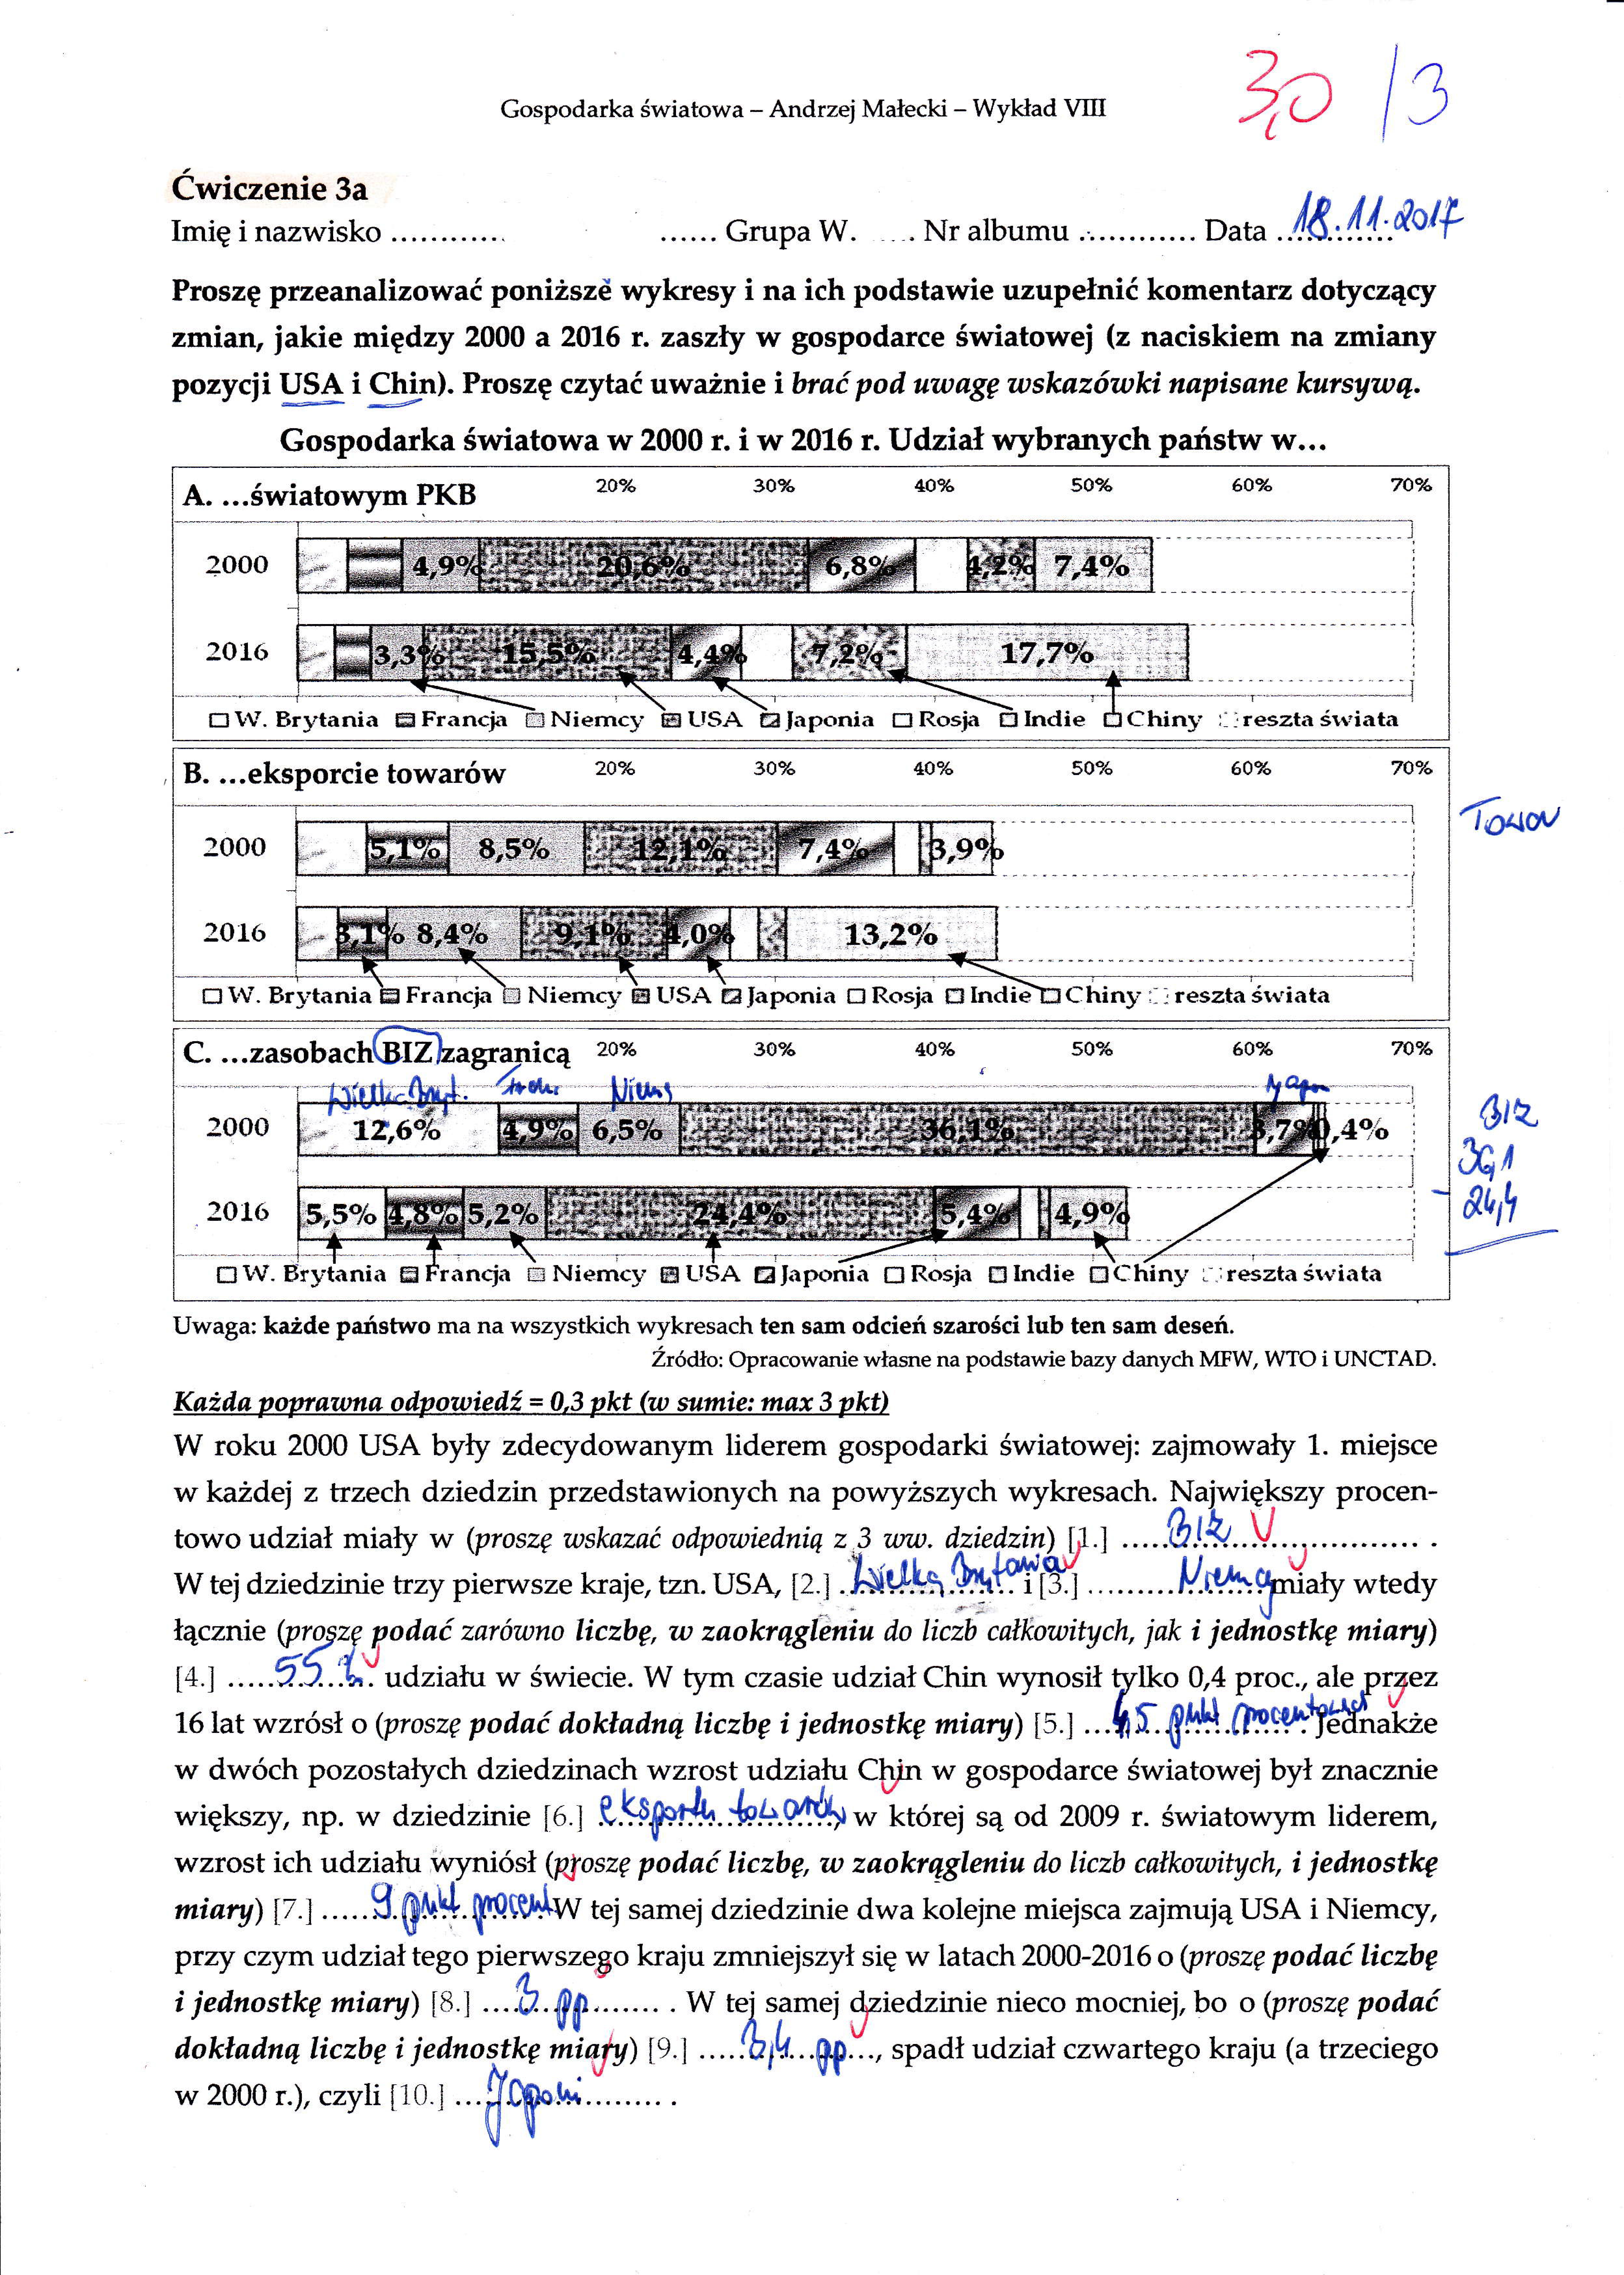 3,0 /3
Gospodarka światowa – Andrzej Małecki – Wykład VIII
Ćwiczenie 3a
Imię i nazwisko ............ ...... Grupa W. .... Nr albumu ............ Data ...18.11.2017
Proszę przeanalizować poniższe wykresy i na ich podstawie uzupełnić komentarz dotyczący
zmian, jakie między 2000 a 2016 r. zaszły w gospodarce światowej (z naciskiem na zmiany
pozycji USA i Chin). Proszę czytać uważnie i brać pod uwagę wskazówki napisane kursywą.
Gospodarka światowa w 2000 r. i w 2016 r. Udział wybranych państw w...
A. ...światowym PKB 20% 30% 40% 50% 60% 70%
2000 4,9% 20,6% 6,8% 4,2% 7,4%
2016 3,3% 15,5% 4,4% 7,2% 17,7%
W. Brytania Francja Niemcy USA Japonia Rosja Indie Chiny reszta świata
B. ...eksporcie towarów 20% 30% 40% 50% 60% 70%
2000 5,1% 8,5% 12,1% 7,4% 3,9%
2016 3,1% 8,4% 9,1% 4,0% 13,2%
W. Brytania Francja Niemcy USA Japonia Rosja Indie Chiny reszta świata
C. ...zasobach BIZ zagranicą 20% 30% 40% 50% 60% 70%
2000 12,6% 4,9% 6,5% 36,1% 3,7% 0,4%
BIZ
36,1
- 24,4
2016 5,5% 4,8% 5,2% 24,4% 5,4% 4,9%
W. Brytania Francja Niemcy USA Japonia Rosja Indie Chiny reszta świata
Uwaga: każde państwo ma na wszystkich wykresach ten sam odcień szarości lub ten sam deseń.
Źródło: Opracowanie własne na podstawie bazy danych MFW, WTO i UNCTAD.
Każda poprawna odpowiedź = 0,3 pkt (w sumie: max 3 pkt)
W roku 2000 USA były zdecydowanym liderem gospodarki światowej: zajmowały 1. miejsce
w każdej z trzech dziedzin przedstawionych na powyższych wykresach. Największy procen-
towo udział miały w (proszę wskazać odpowiednią z 3 ww. dziedzin) [1.] .....BIZ.....
W tej dziedzinie trzy pierwsze kraje, tzn. USA, [2.] ..Wielka Brytania.. i [3.] .........Niemcy miały wtedy
łącznie (proszę podać zarówno liczbę, w zaokrągleniu do liczb całkowitych, jak i jednostkę miary)
[4.] .....55 %... udziału w świecie. W tym czasie udział Chin wynosił tylko 0,4 proc., ale przez
16 lat wzrósł o (proszę podać dokładną liczbę i jednostkę miary) [5.] ...4,5 punkt procentowy. Jednakże
w dwóch pozostałych dziedzinach wzrost udziału Chin w gospodarce światowej był znacznie
większy, np. w dziedzinie [6.] eksportu towarów, w której są od 2009 r. światowym liderem,
wzrost ich udziału wyniósł (proszę podać liczbę, w zaokrągleniu do liczb całkowitych, i jednostkę
miary) [7.] .....9 punkt procent. W tej samej dziedzinie dwa kolejne miejsca zajmują USA i Niemcy,
przy czym udział tego pierwszego kraju zmniejszył się w latach 2000-2016 o (proszę podać liczbę
i jednostkę miary) [8.] ....3 pp........ . W tej samej dziedzinie nieco mocniej, bo o (proszę podać
dokładną liczbę i jednostkę miary) [9.] .....3,4 pp..., spadł udział czwartego kraju (a trzeciego
w 2000 r.), czyli [10.] ...Japonii......... .